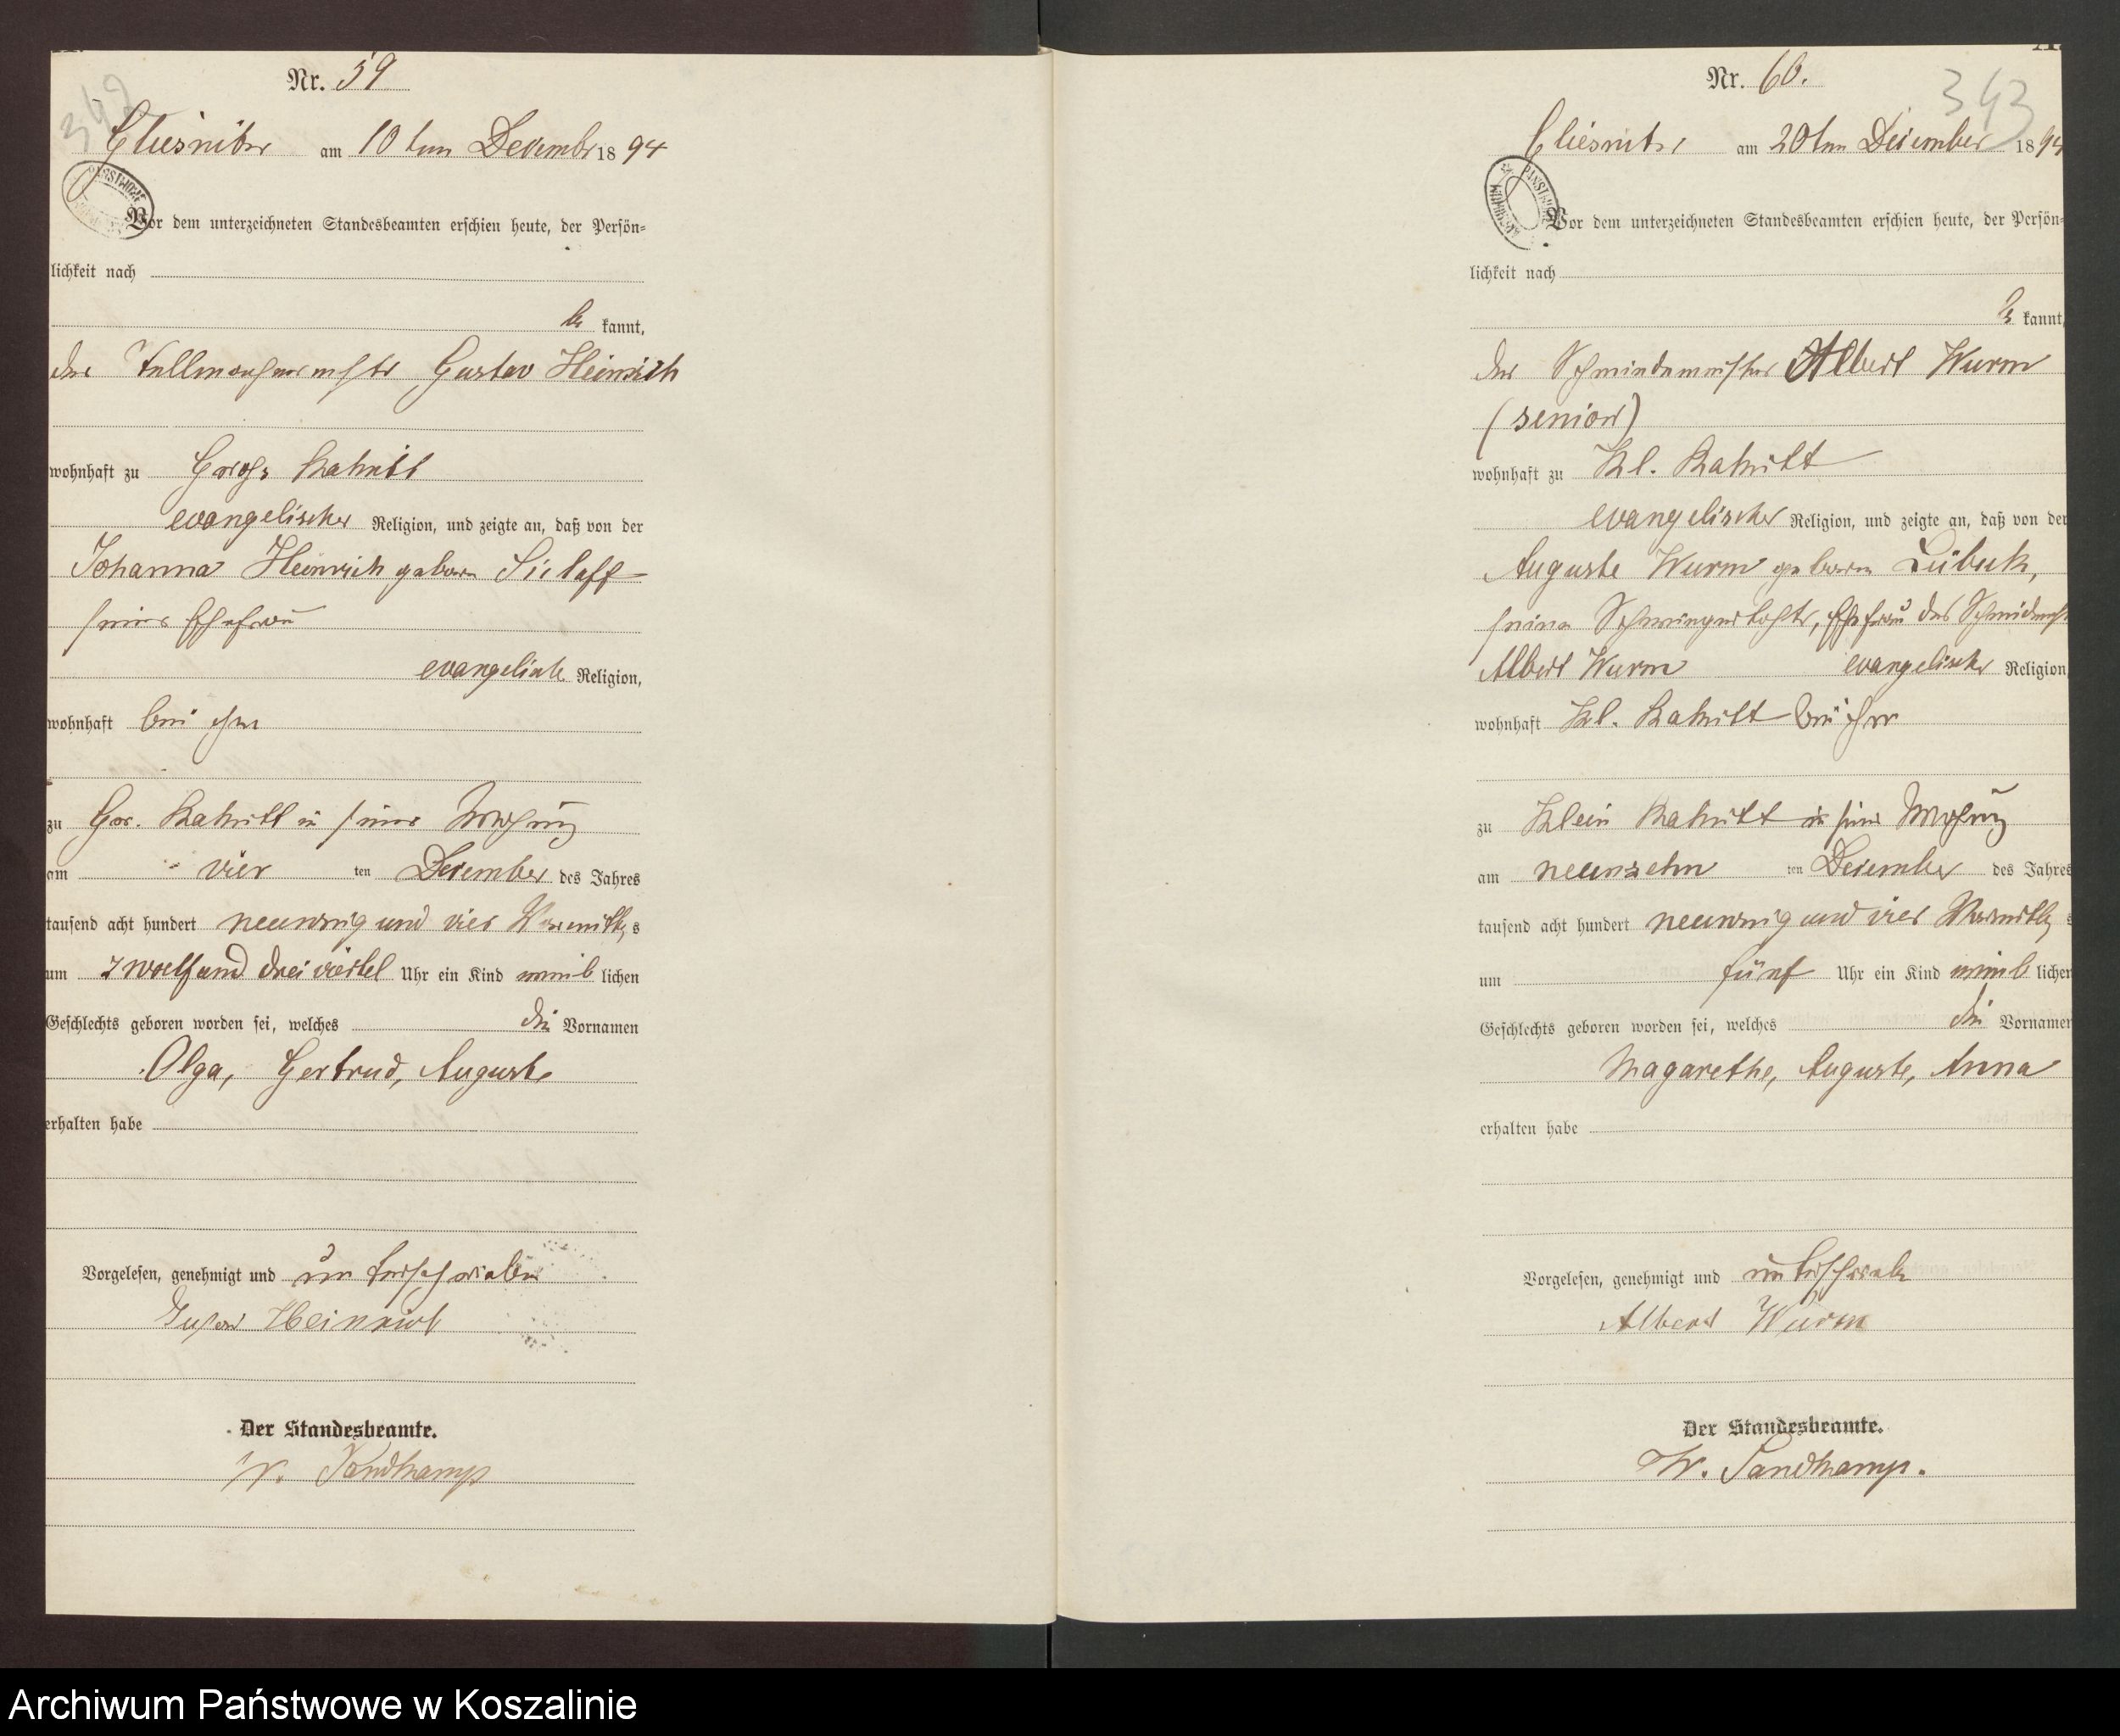 Nr. 59
am 10ten Dezember 1894
Vor dem unterzeichneten Standesbeamten erschien heute, der Persön-
lichkeit nach
be kannt,
der Gustav Heinrich
wohnhaft zu Gross Rakitt
evangelischer Religion, und zeigte an, daß von der
Johanna Heinrich geboren Sielaff
seiner Ehefrau
evangelischer Religion,
wohnhaft bei ihm
zu Gr. Rakitt in seiner Wohnung
am vier ten Dezember des Jahres
tausend acht hundert neunzig und vier Vormittags
um zwoelf und drei viertel Uhr ein Kind weib lichen
Geschlechts geboren worden sei, welches die Vornamen
Olga, Gertrud, Auguste
erhalten habe
Vorgelesen, genehmigt und unterschrieben
Gustav Heinrich
Der Standesbeamte.
W. Sandkamp
Nr. 60.
343
am 20ten Dezember 1894
Vor dem unterzeichneten Standesbeamten erschien heute, der Persön-
lichkeit nach
be kannt,
der Schmiedemeister Albert Wurm
(senior)
wohnhaft zu Kl. Rakitt
evangelischer Religion, und zeigte an, daß von der
Auguste Wurm geboren Lübeck,
seiner Schwiegertochter, Ehefrau des
Albert Wurm evangelischer Religion,
wohnhaft Kl. Rakitt bei ihm
zu Klein Rakitt in seiner Wohnung
am neunzehn ten Dezember des Jahres
tausend acht hundert neunzig und vier Vormittags
um fünf Uhr ein Kind weib lichen
Geschlechts geboren worden sei, welches die Vornamen
Magarethe, Auguste, Anna
erhalten habe
Vorgelesen, genehmigt und unterschrieben
Albert Wurm
Der Standesbeamte.
W. Sandkamp.
Archiwum Państwowe w Koszalinie